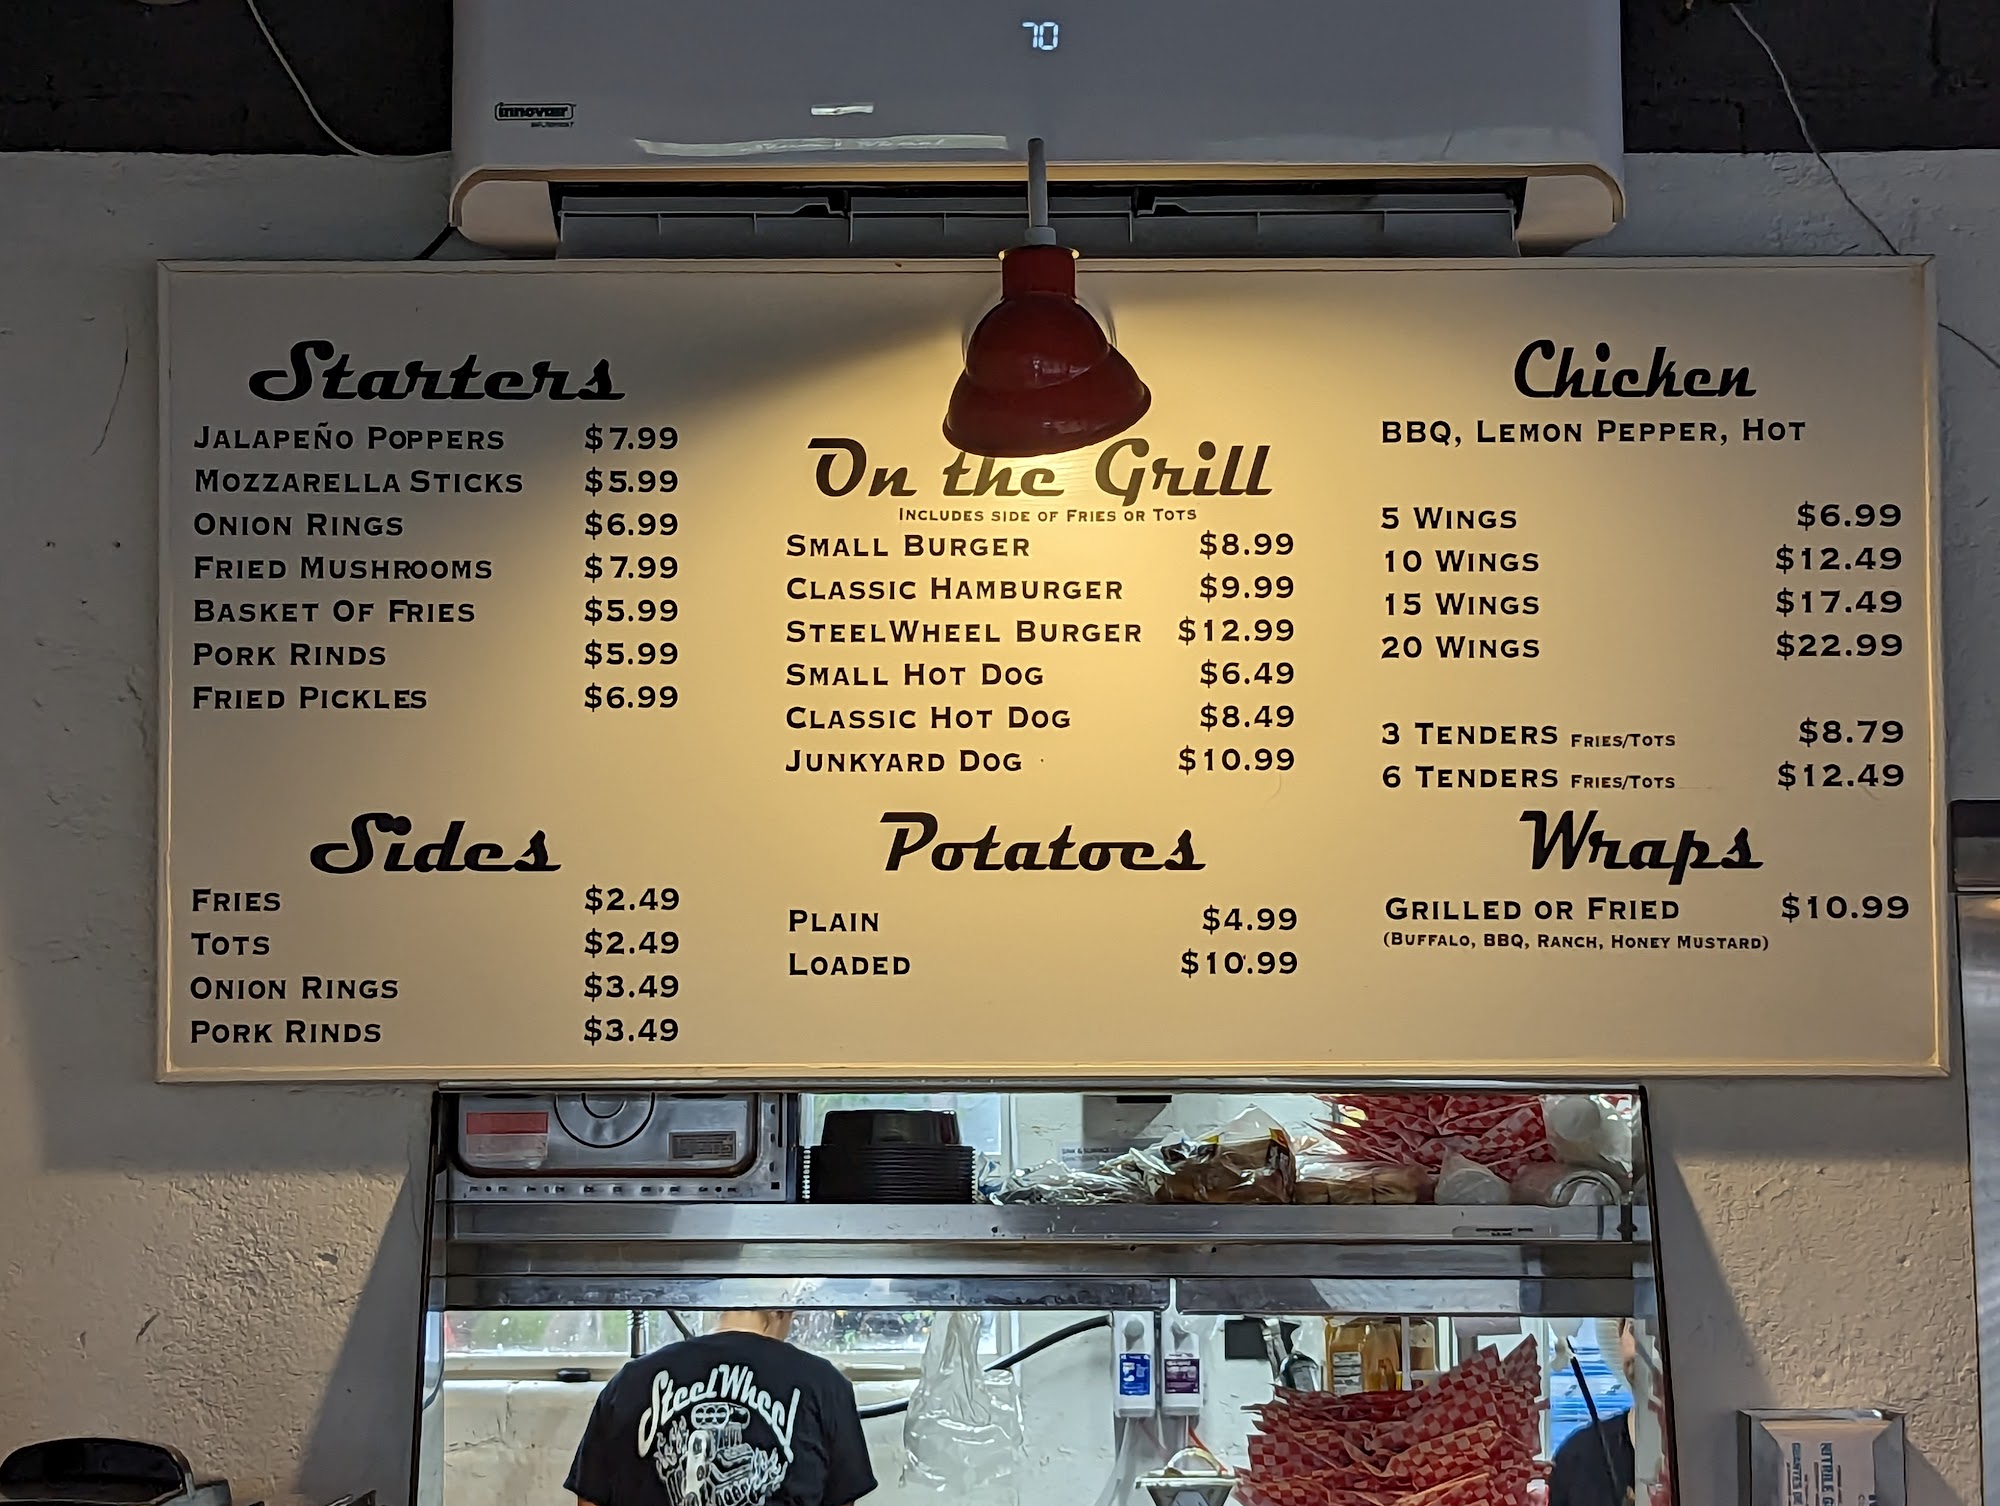 70
innovair
Starters
Jalapeño Poppers $7.99
Mozzarella Sticks $5.99
Onion Rings $6.99
Fried Mushrooms $7.99
Basket Of Fries $5.99
Pork Rinds $5.99
Fried Pickles $6.99
Sides
Fries $2.49
Tots $2.49
Onion Rings $3.49
Pork Rinds $3.49
On the Grill
Includes side of Fries or Tots
Small Burger $8.99
Classic Hamburger $9.99
SteelWheel Burger $12.99
Small Hot Dog $6.49
Classic Hot Dog $8.49
Junkyard Dog $10.99
Potatoes
Plain $4.99
Loaded $10.99
Chicken
BBQ, Lemon Pepper, Hot
5 Wings $6.99
10 Wings $12.49
15 Wings $17.49
20 Wings $22.99
3 Tenders Fries/Tots $8.79
6 Tenders Fries/Tots $12.49
Wraps
Grilled or Fried $10.99
(Buffalo, BBQ, Ranch, Honey Mustard)
SteelWheel